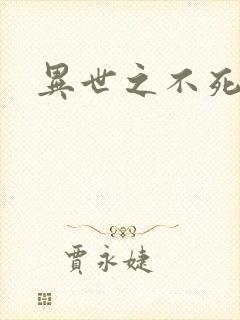 異世之不死
賈永婕